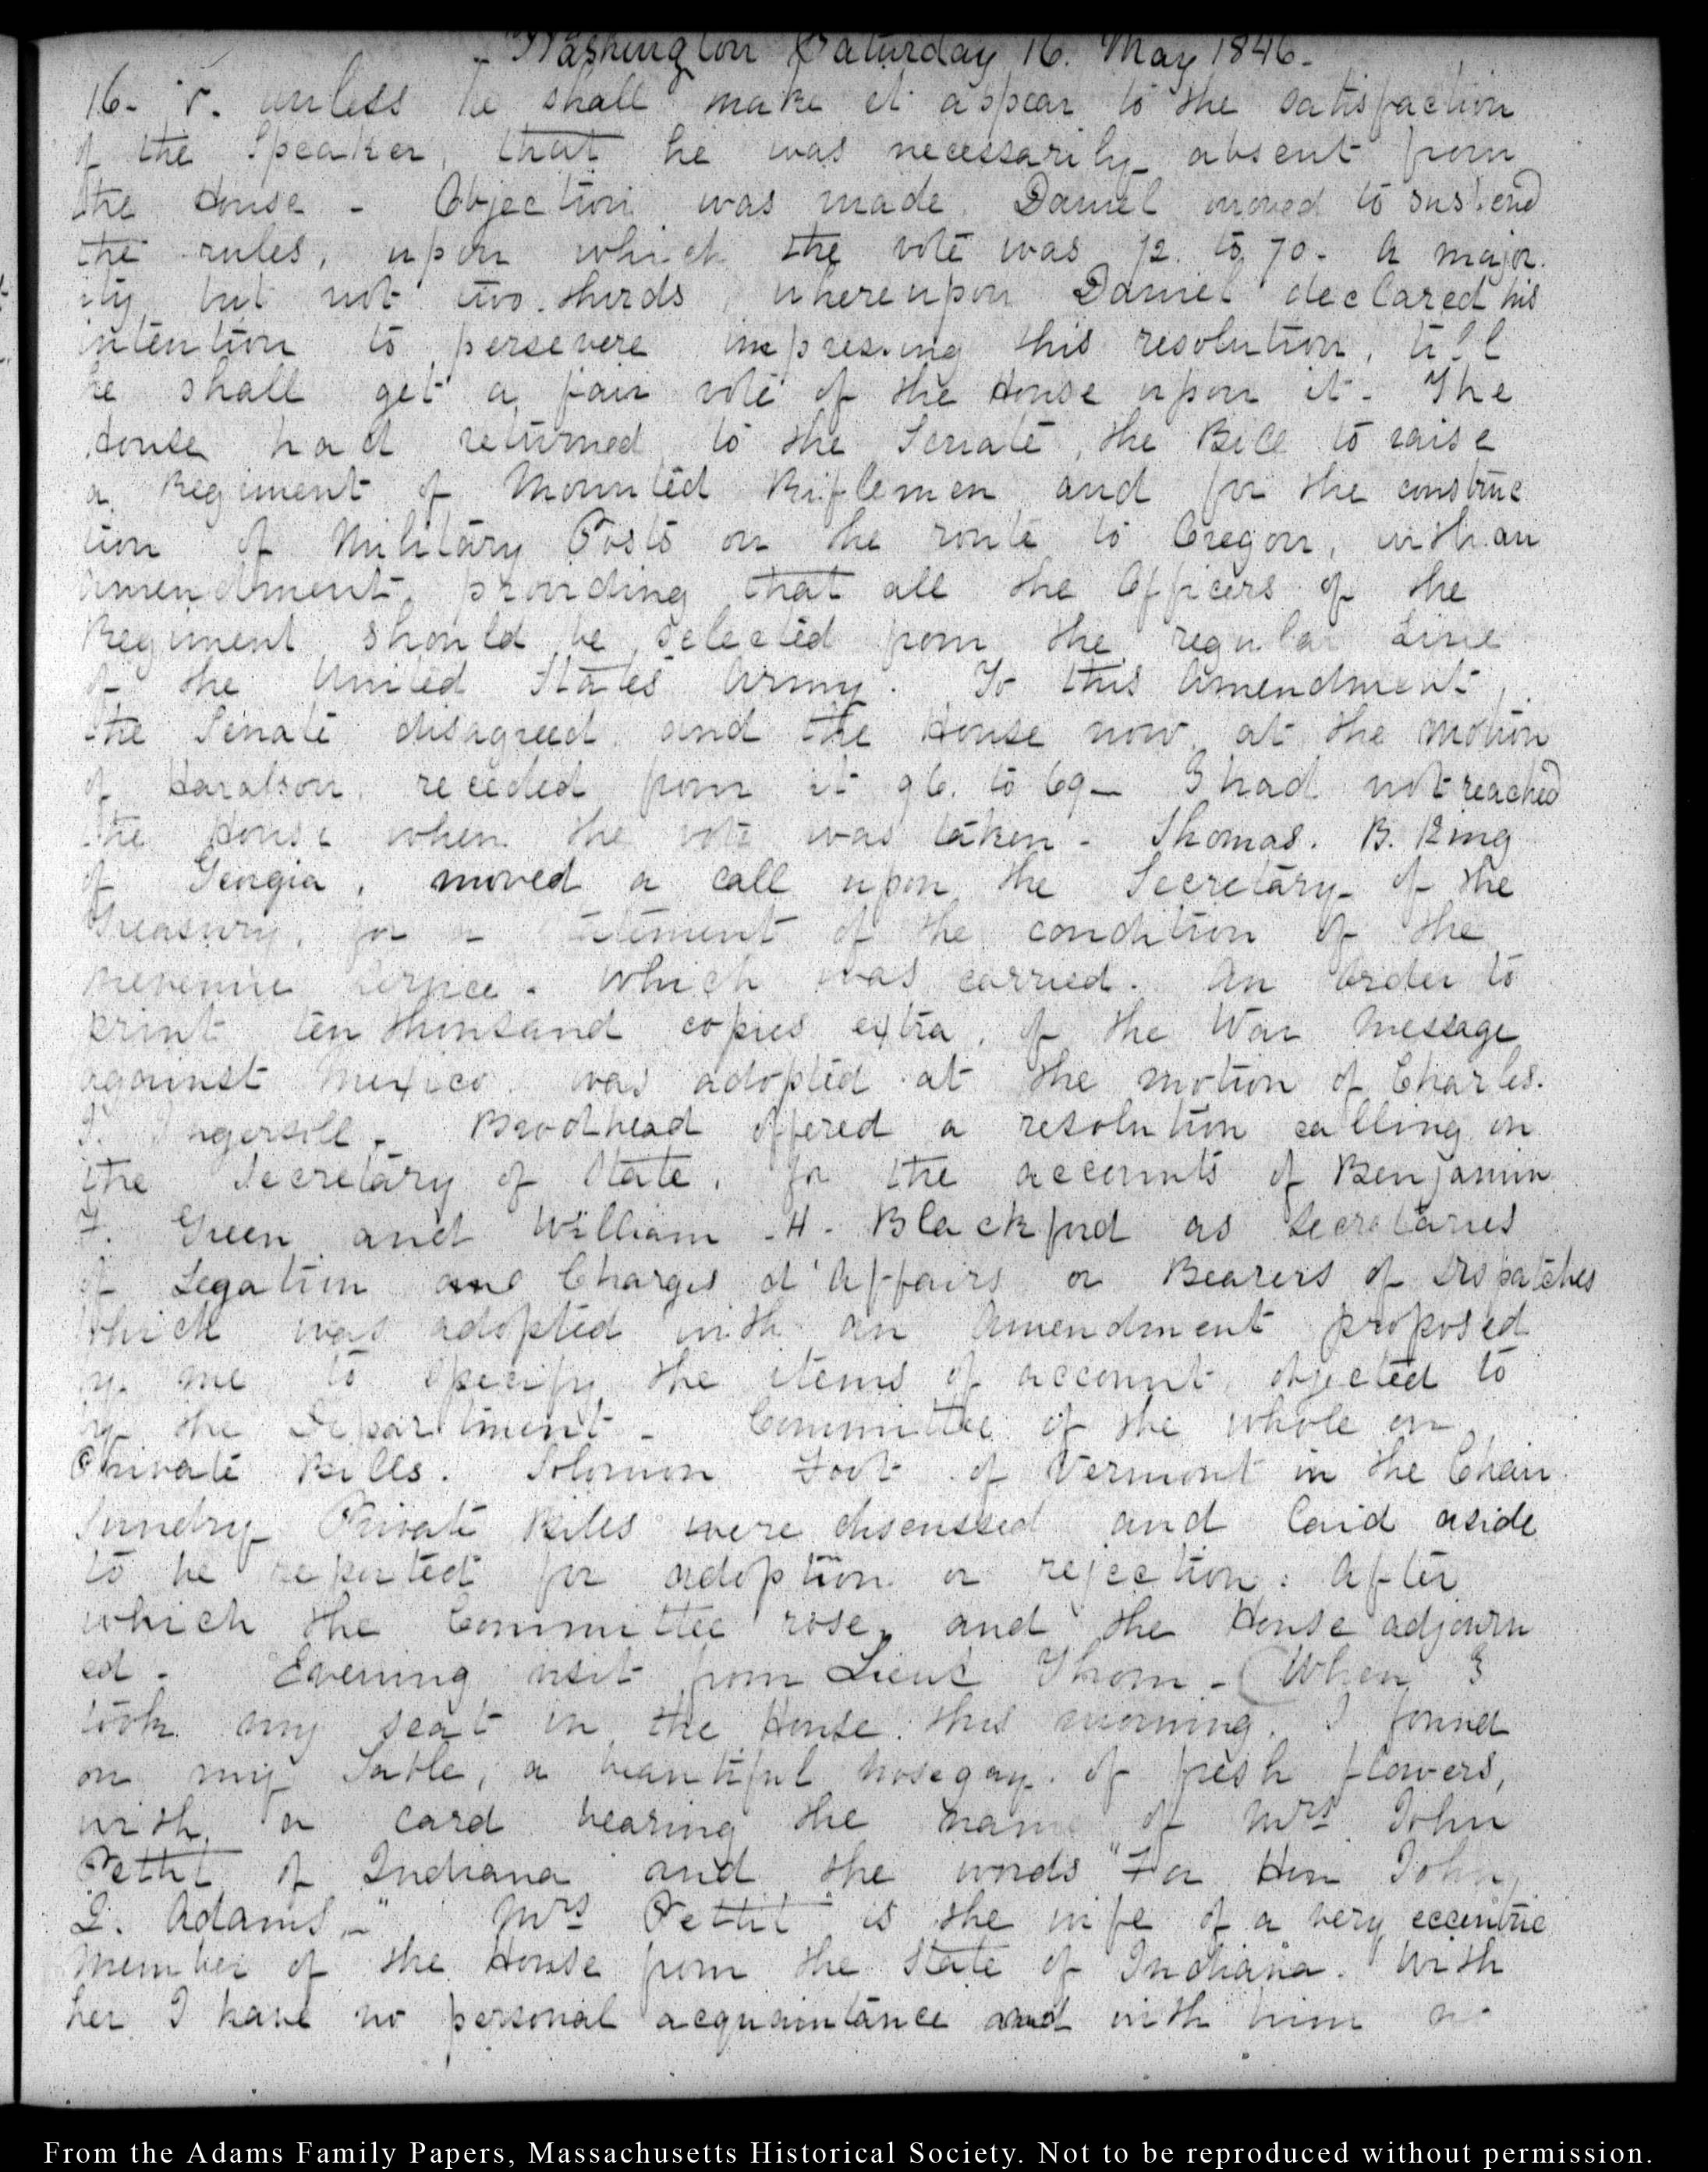 Washington Saturday 16. May 1846.
16. V. unless he shall make it appear to the satisfaction
of the Speaker, that he was necessarily absent from
the House - Objection was made. Daniel moved to suspend
the rules, upon which the vote was 72. to 70. a major
ity but not two-thirds, whereupon Daniel declared his
intention to persevere in pressing this resolution, till
he shall get a fair vote of the House upon it. The
House had returned to the Senate, the Bill to raise
a Regiment of Mounted Riflemen and for the construc
tion of Military Posts on the route to Oregon, with an
amendment, providing that all the Officers of the
Regiment should be selected from the regular Line
of the United States Army. To this amendment,
the Senate disagreed and the House now at the motion
of Haralson, receded from it 96. to 69 - I had not reached
the House when the vote was taken - Thomas. B. King
of Georgia, moved a call upon the Secretary of the
Treasury, for a statement of the condition of the
revenue service - which was carried. An order to
print ten thousand copies extra, of the War Message
against Mexico was adopted at the motion of Charles.
J. Ingersoll. Brodhead offered a resolution calling on
the Secretary of State, for the accounts of Benjamin
F. Green and William H. Blackford as Secretaries
of Legation and Chargés d'Affairs or Bearers of Dispatches
which was adopted with an amendment proposed
by me to specify the items of account objected to
by the Department - Committee of the whole on
Private Bills. Solomon Foot of Vermont in the Chair.
Sundry Private Bills were discussed and laid aside
to be reported for adoption or rejection: after
which the Committee rose, and the House adjourn
ed. Evening visit from Lieut Thom - (When I
took my seat in the House this morning, I found
on my Table, a beautiful nosegay of fresh flowers,
with a card bearing the name of Mrs John
Pettit of Indiana and the words "For Hon John
Q. Adams." Mrs Pettit is the wife of a very eccentric
member of the House from the State of Indiana. With
her I have no personal acquaintance and with him
From the Adams Family Papers, Massachusetts Historical Society. Not to be reproduced without permission.